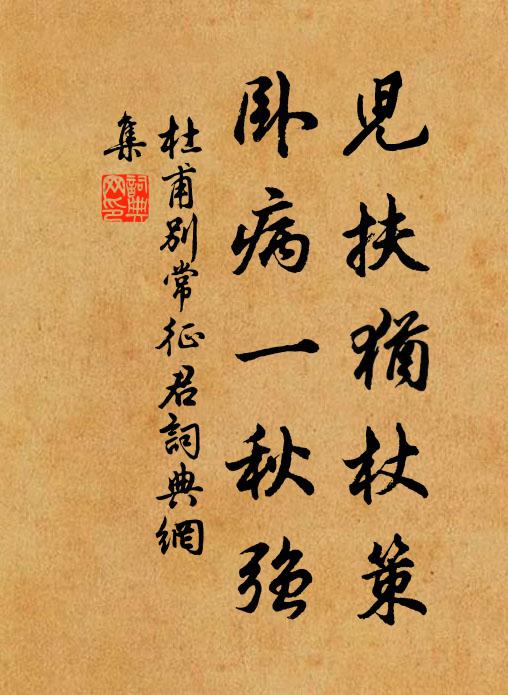 兒扶猶杖策
卧病一秋強
杜甫別常征君詞典網
集
詞典
网印